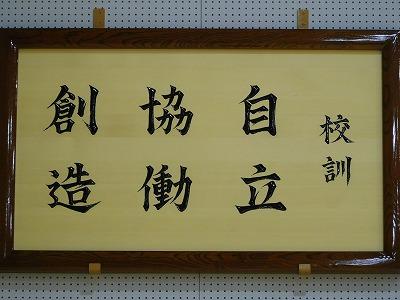 校訓
自立
協働
創造